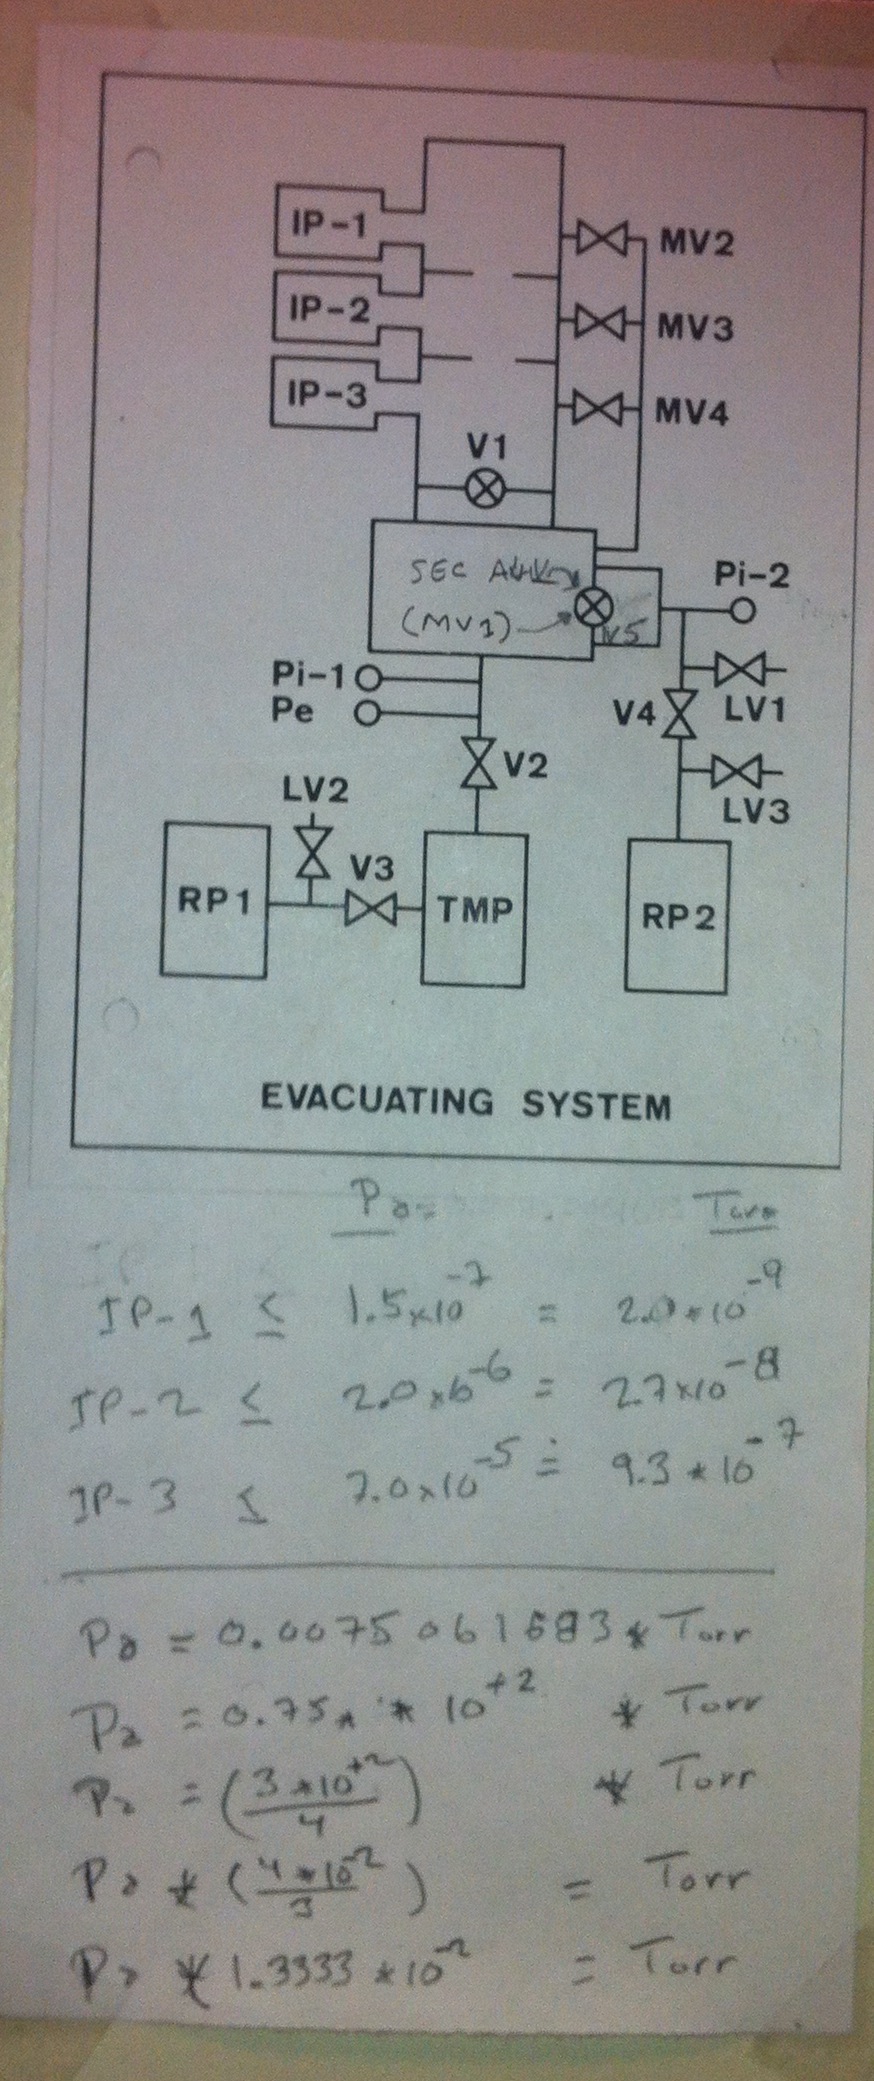 IP-1
MV2
IP-2
MV3
IP-3
MV4
V1
SEC
(MV1)
V5
Pi-2
Pi-1
Pe
V4
LV1
V2
LV2
LV3
V3
RP1
TMP
RP2
EVACUATING SYSTEM
Pa Torr
IP-1 ≤ 1.5×10^-7 = 2.0*10^-9
IP-2 ≤ 2.0×10^-6 = 2.7×10^-8
IP-3 ≤ 7.0×10^-5 = 9.3*10^-7
Pa = 0.0075061683 * Torr
Pa = 0.75 * 10^+2 * Torr
Pa = (3*10^+2/4) * Torr
Pa * (4*10^-2/3) = Torr
Pa * 1.3333 *10^-2 = Torr